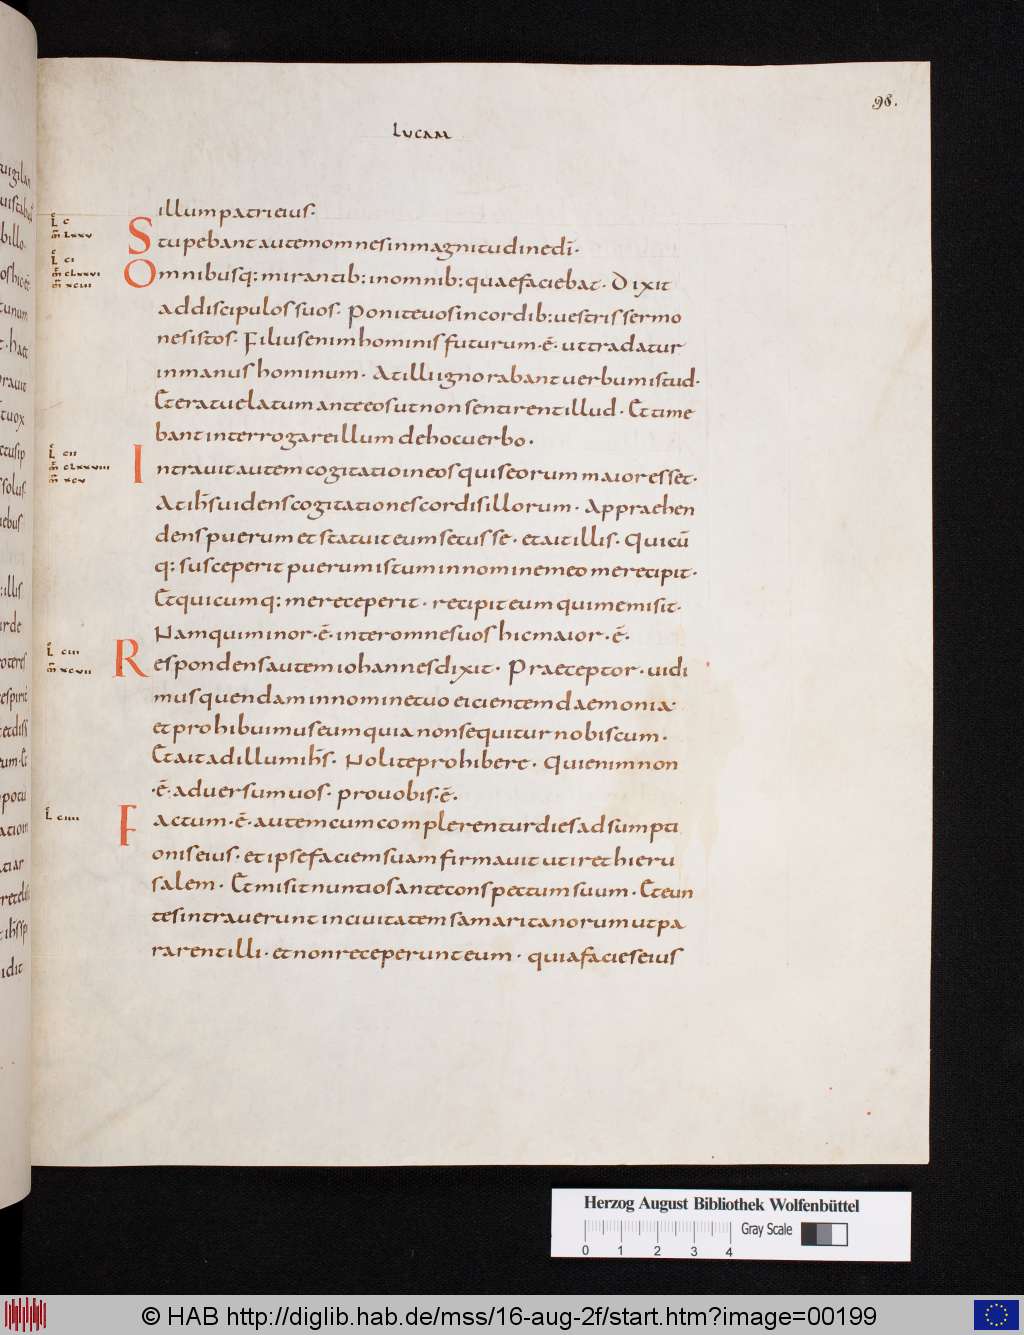 98.
LUCAM
illum patri eius·
L C
M LXXV
Stupebant autem omnes in magnitudine dī·
L CI
M CLXXVI
M XCIII
Omnibusq: mirantib: in omnib: quae faciebat· Dixit
ad discipulos suos· Ponite uos in cordib: uestris sermo
nes istos· Filius enim hominis futurum·ē· ut tradatur
in manus hominum· At illi ignorabant uerbum istud·
Et erat uelatum ante eos ut non sentirent illud· Et time
bant interrogare illum de hoc uerbo·
L CII
M CLXXVIII
M XCV
Intrauit autem cogitatio in eos quis eorum maior esset·
At ihs̄ uidens cogitationes cordis illorum· Apprehen
dens puerum et statuit eum secus se· et ait illis· Quicū
q: susceperit puerum istum in nomine meo me recipit·
Et quicumq: me receperit· recipit eum qui me misit·
Nam qui minor·ē· inter omnes uos hic maior·ē·
L CIII
M XCVII
Respondens autem iohannes dixit· Praeceptor· uidi
mus quendam in nomine tuo eicientem daemonia·
et prohibuimus eum quia non sequitur nobiscum·
Et ait ad illum ihs̄· Nolite prohibere· Qui enim non
·ē· aduersum uos· pro uobis·ē·
L CIIII
Factum·ē· autem cum complerentur dies adsumpti
onis eius· et ipse faciem suam firmauit ut iret hieru
salem· Et misit nuntios ante conspectum suum· Et eun
tes intrauerunt in ciuitatem samaritanorum ut pa
rarent illi· et non receperunt eum· quia facies eius
Herzog August Bibliothek Wolfenbüttel
Gray Scale
0 1 2 3 4
© HAB http://diglib.hab.de/mss/16-aug-2f/start.htm?image=00199